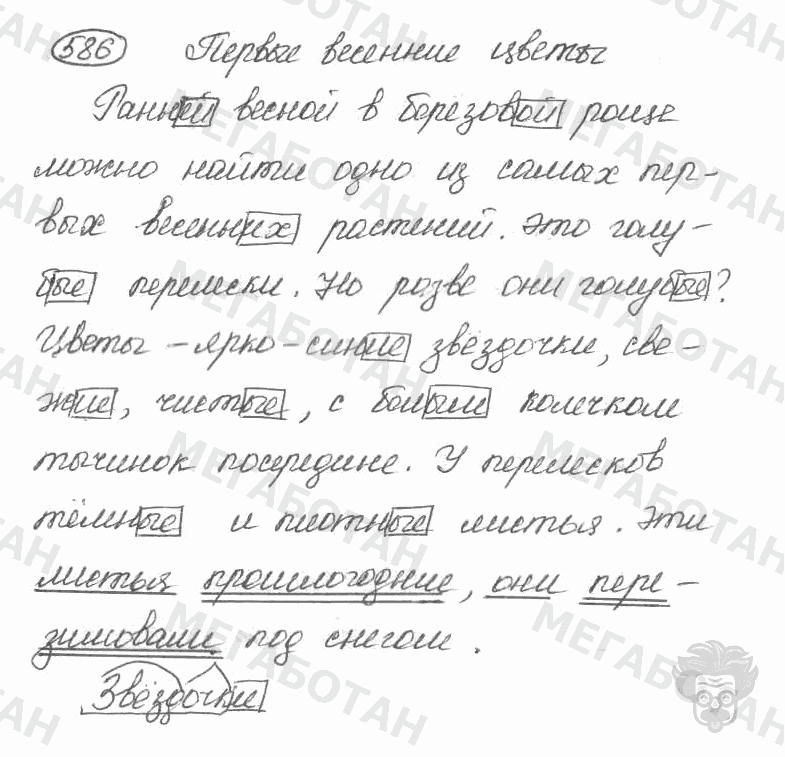 586 Первые весенние цветы
Ранней весной в берёзовой роще
можно найти одно из самых пер-
вых весенних растений. Это голу-
бые перелески. Но розве они голубые?
Цветы - ярко-синие звёздочки, све-
жие, чистые, с белым колечком
тычинок посередине. У перелесков
тёмные и плотные листья. Эти
листья прошлогодние, они пере-
зимовали под снегом.
Звёздочки
МЕГАБОТАН